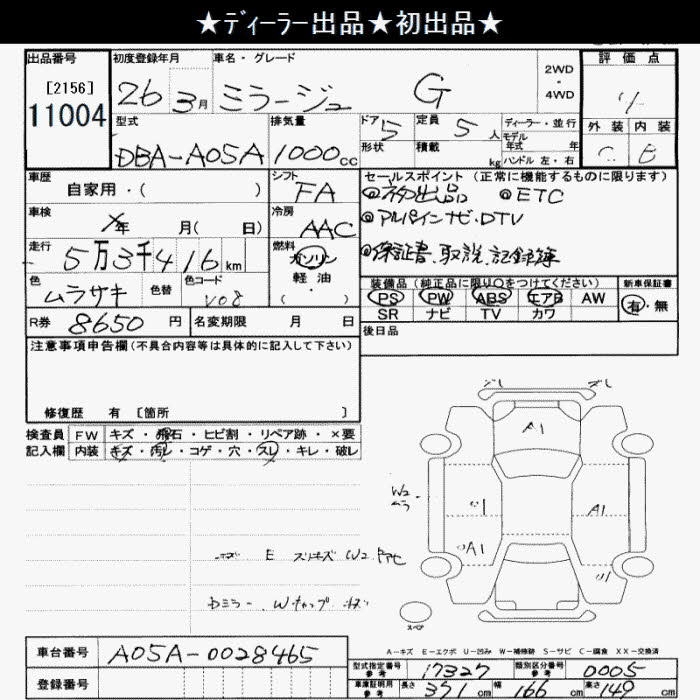 ★ディーラー出品★初出品★
出品番号 初度登録年月 車名・グレード 2WD・4WD 評価点
[2156]
11004 26 3月 ミラージュ G 4
型式 排気量 ドア 5 定員 5人 ディーラー・並行 外装 内装
モデル年式 年
DBA-A05A 1000cc 形状 積載 kg ハンドル 左・右 C B
車歴 シフト セールスポイント (正常に機能するものに限ります)
自家用・( ) FA ◎ネタ出品 ◎ETC
車検 冷房 ◎アルパインナビ・DTV
年 月( 日) AAC
走行 燃料 ◎保証書、取説、記録簿
5万3千416km ガソリン
軽油
・( )
色 色替 色コード 装備品 (純正品に限り○をつけてください) 新車保証書
ムラサキ V08 PS PW ABS エアB AW 有・無
SR ナビ TV カワ
R券 8650円 名変期限 月 日 後日品
注意事項申告欄(不具合内容等は具体的に記入して下さい)
修復歴 有 [箇所 ]
検査員 FW キズ・飛石・ヒビ割・リペア跡・×要
記入欄 内装 キズ・汚レ・コゲ・穴・スレ・キレ・破レ
ズレ ズレ
A1
W2
ムラ
U1 A1
A1 U1
E スリキズ W2
Dミラー、Wキャップ キズ
スペア
A-キズ E-エクボ U-凹み W-補修跡 S-サビ C-腐食 XX-交換済
車台番号 A05A-0028465
登録番号
型式指定番号 参考 17327 類別区分番号 参考 0005
車庫証明用 参考 長さ 371cm 幅 166cm 高さ 149cm